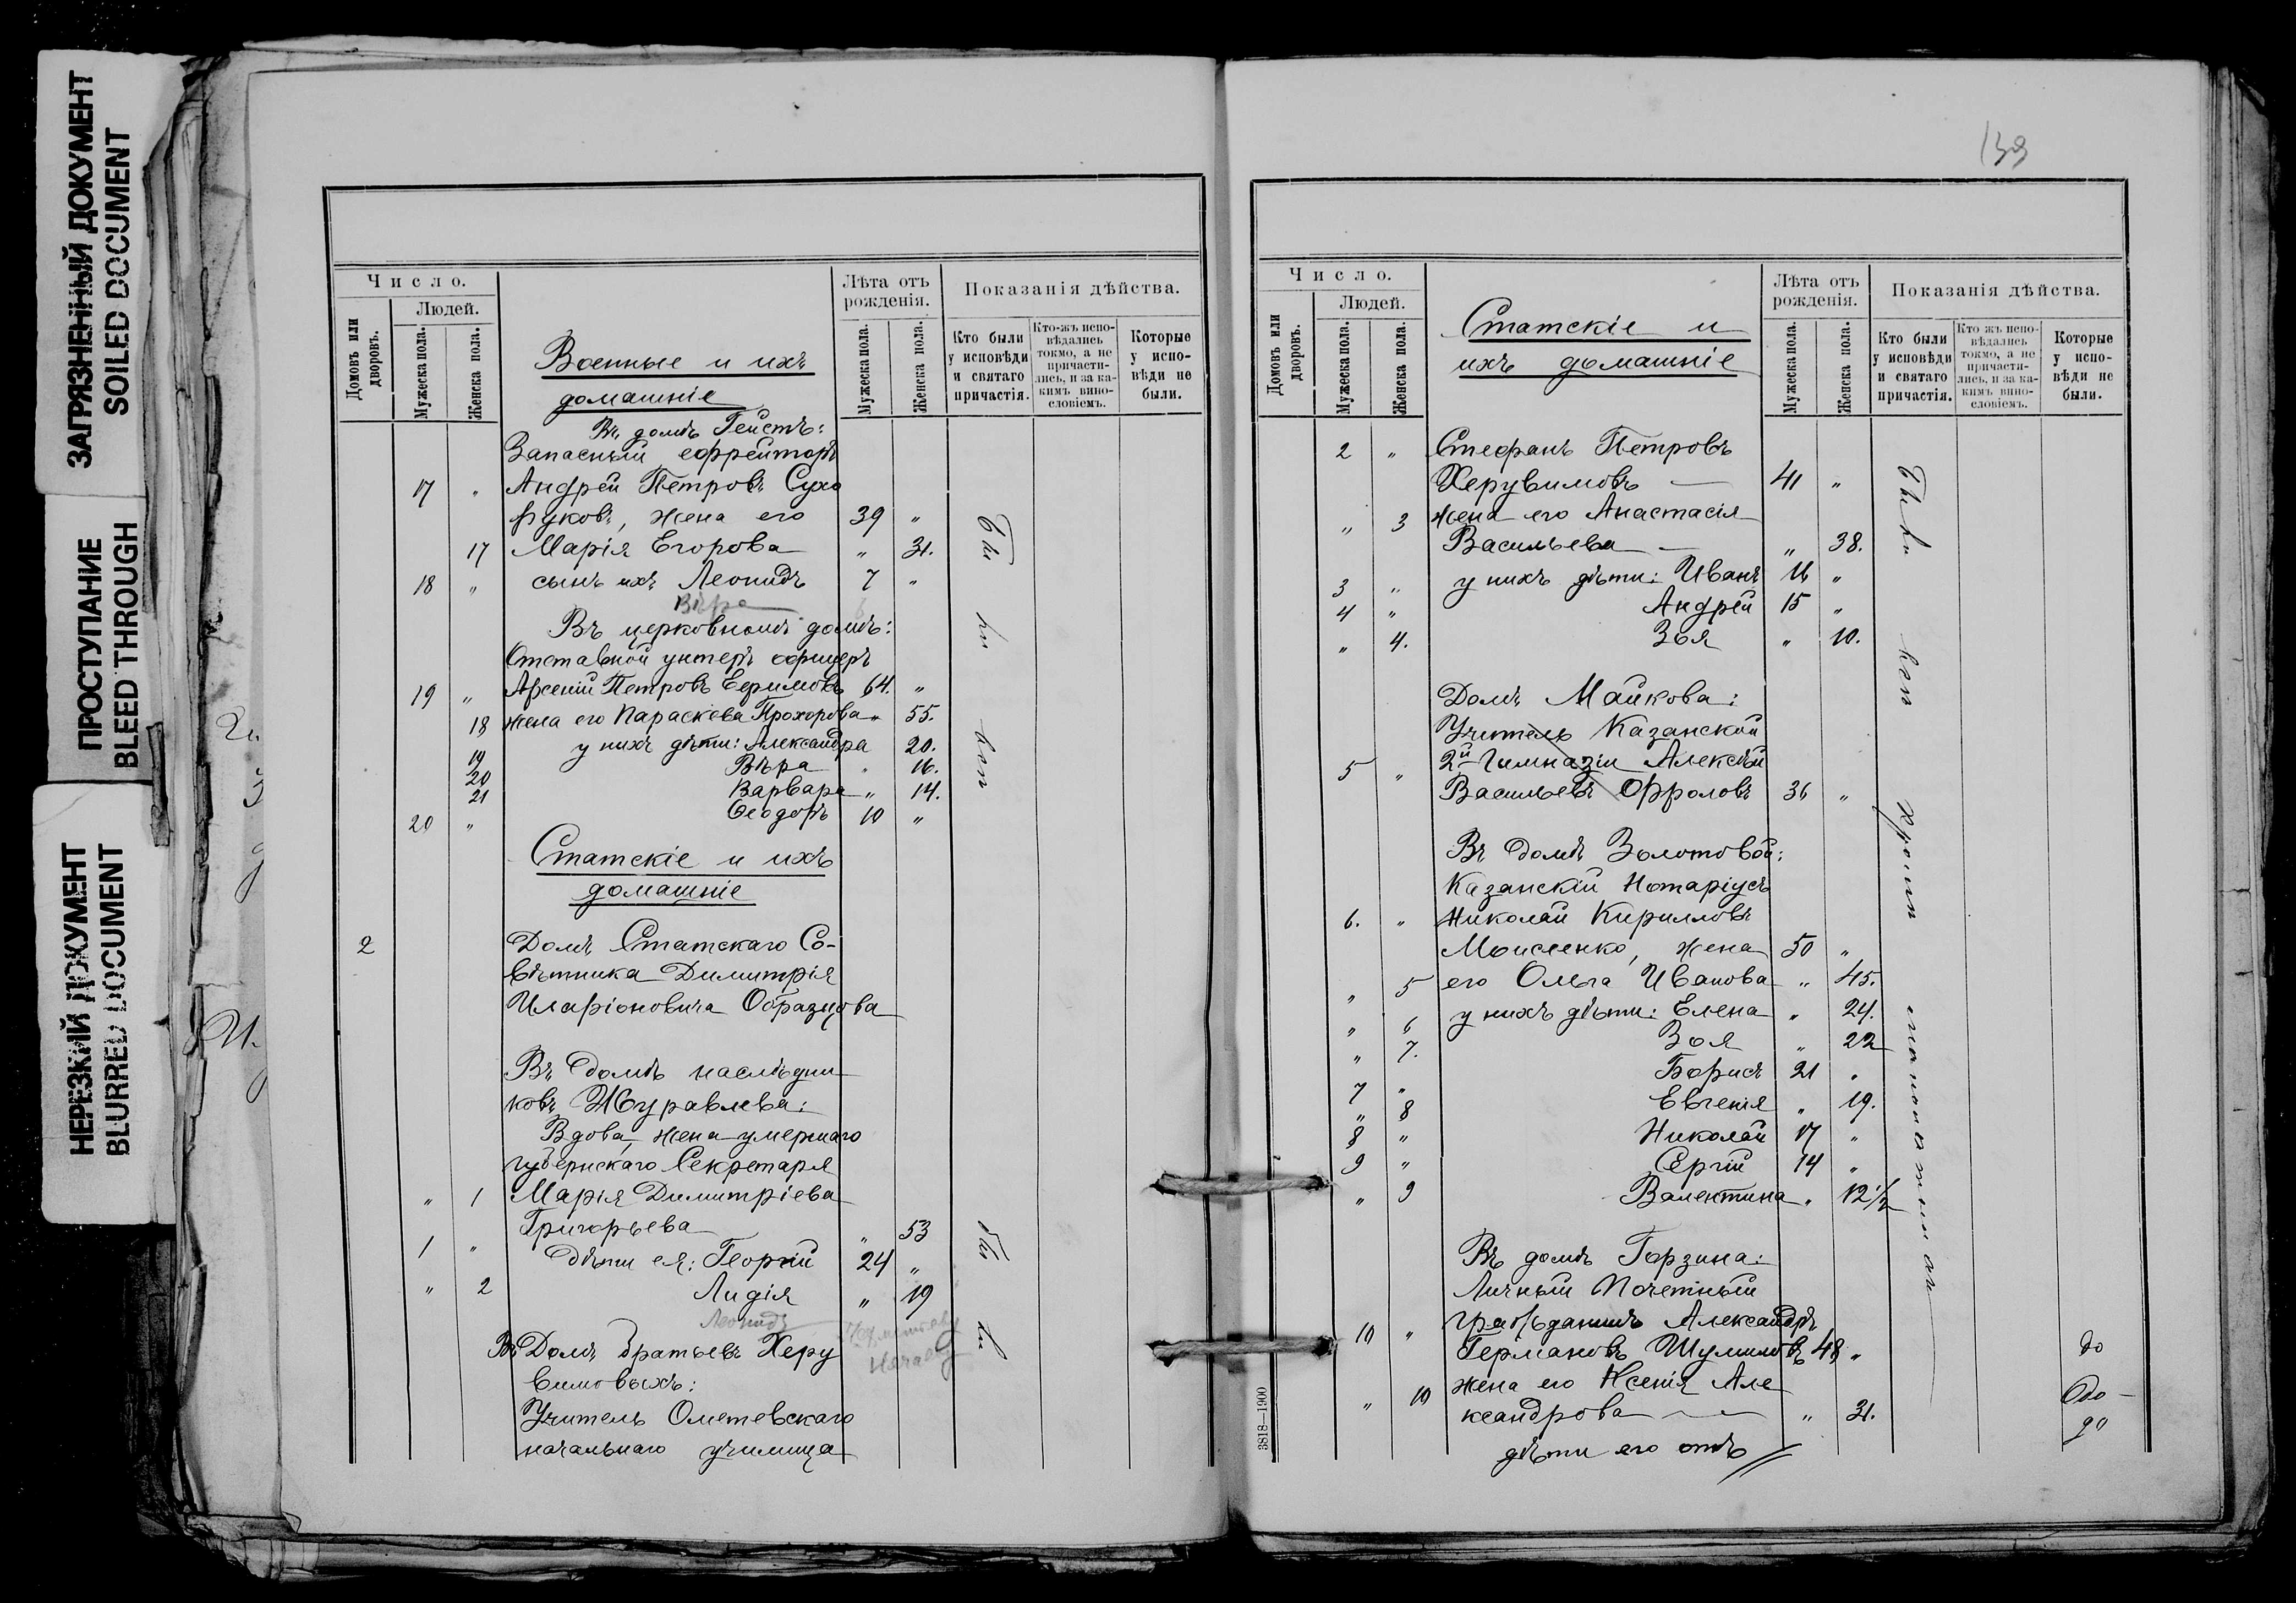 ЗАГРЯЗНЕННЫЙ ДОКУМЕНТ
SOILED DOCUMENT
ПРОСТУПАНИЕ
BLEED THROUGH
НЕРЕЗКИЙ ДОКУМЕНТ
BLURRED DOCUMENT
Число.
Людей.
Домовъ или дворовъ.
Мужеска пола.
Женска пола.
Военные и ихъ
домашніе
Лѣта отъ рожденія.
Мужеска пола.
Женска пола.
Показанія дѣйства.
Кто были у исповѣди и святаго причастія.
Кто-жъ исповѣдались токмо, а не причастились, и за какимъ винословіемъ.
Которые у исповѣди не были.
Въ домѣ Гейстъ:
Запасный ефрейторъ
17 " Андрей Петровъ Сухо
руковъ, жена его 39 "
17 Марія Егорова " 31.
18 " сынъ ихъ Леонидъ 7 "
Вѣра
Въ церковномъ домѣ:
Отставной унтеръ офицеръ
19 " Арсеній Петровъ Ефимовъ 64. "
18 жена его Параскева Прохорова " 55.
19 у нихъ дѣти: Александра 20.
20 Вѣра " 16.
21 Варвара " 14.
20 " Ѳеодоръ 10 "
Статскіе и ихъ
домашніе
2 Домъ Статскаго Со-
вѣтника Димитрія
Иларіоновича Образцова
Въ домѣ наслѣдни
ковъ Журавлева:
Вдова, жена умершаго
губернскаго Секретаря
" 1 Марія Димитріева
Григорьева " 53
1 " дѣти ея: Георгій 24 "
" 2 Лидія " 19
Леонидъ
Въ Домѣ братьевъ Херу
вимовыхъ:
Учитель Ометевскаго
начальнаго училища
Бы ли
139
Число.
Людей.
Домовъ или дворовъ.
Мужеска пола.
Женска пола.
Статскіе и
ихъ домашніе
Лѣта отъ рожденія.
Мужеска пола.
Женска пола.
Показанія дѣйства.
Кто были у исповѣди и святаго причастія.
Кто жъ исповѣдались токмо, а не причастились, и за какимъ винословіемъ.
Которые у исповѣди не были.
2 " Стефанъ Петровъ
Херувимовъ — 41 "
" 3 жена его Анастасія
Васильева — " 38.
3 " у нихъ дѣти: Иванъ 16 "
4 " Андрей 15 "
" 4. Зоя " 10.
Домъ Майкова:
Учитель Казанской
5 " 2й Гимназіи Алексѣй
Васильевъ Фроловъ 36 "
Въ домѣ Золотовой:
Казанскій Нотаріусъ
6. " Николай Кирилловъ
Моисеенко, жена 50 "
" 5 его Ольга Иванова " 45.
" 6 у нихъ дѣти: Елена " 24.
" 7. Зоя " 22
7 " Борисъ 21 "
" 8 Евгенія " 19.
8 " Николай 17 "
9 " Сергій 14 "
" 9 Валентина " 12 1/2
Въ домѣ Горзина:
Личный Почетный
10 " гражданинъ Александръ
Германовъ Шумиловъ 48 "
" 10 жена его Ксенія Але
ксандрова — " 31.
дѣти его отъ
3818—1900